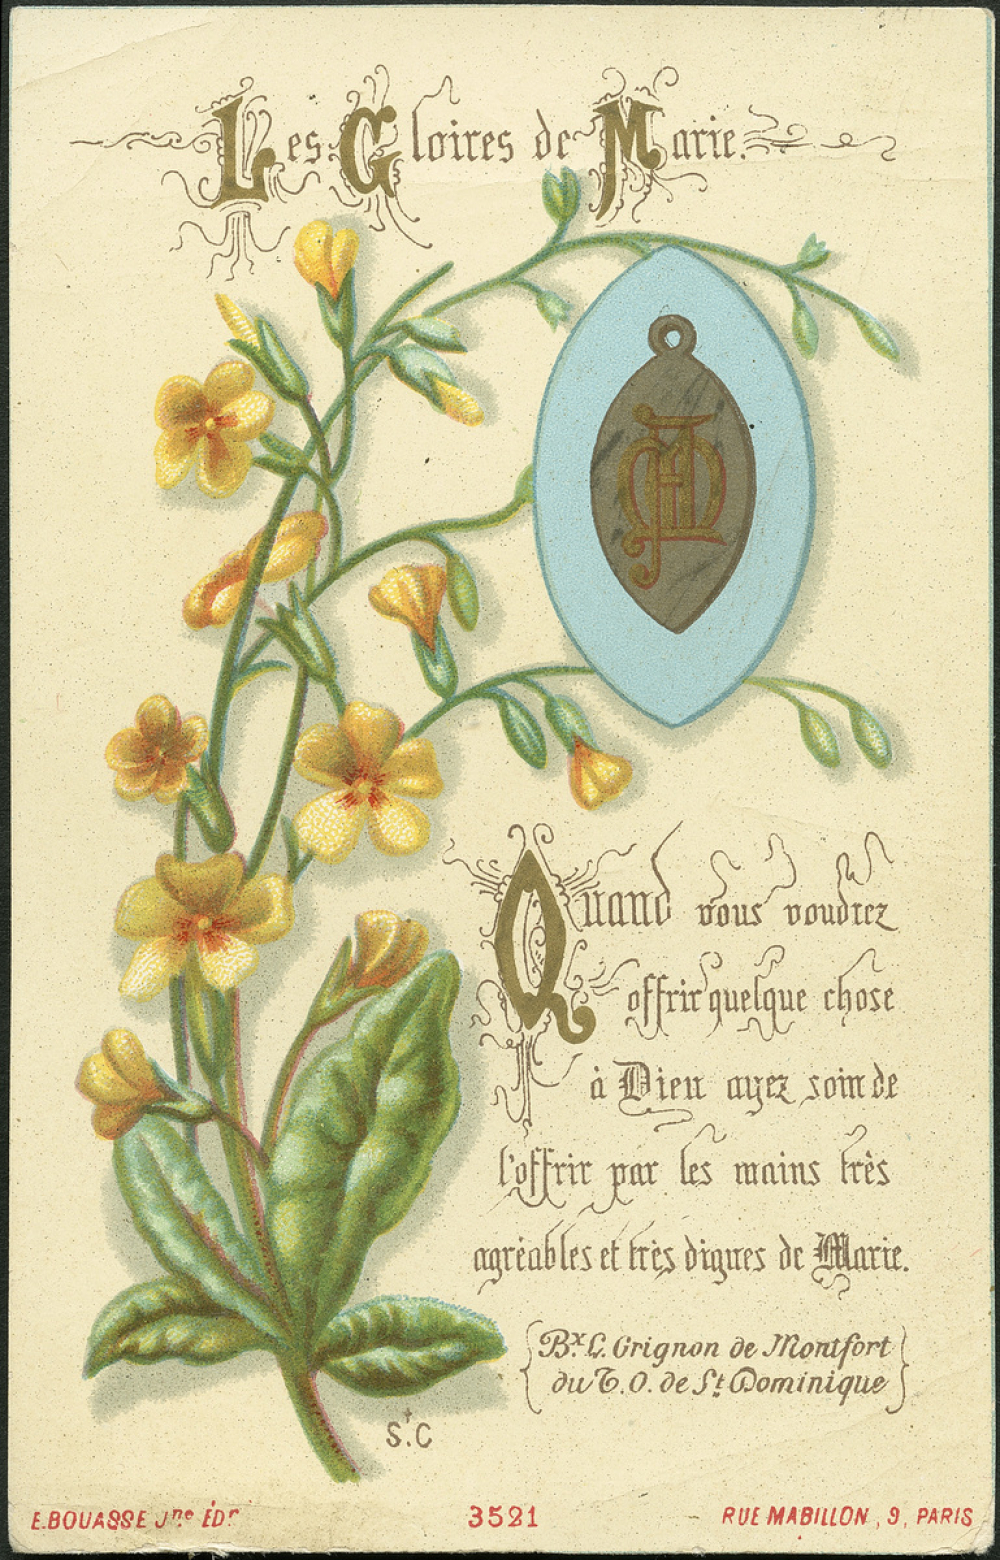 Les Gloires de Marie.
Quand vous voudrez
offrir quelque chose
à Dieu ayez soin de
l'offrir par les mains très
agréables et très dignes de Marie.
Bx. L. Grignon de Montfort
du T. O. de St Dominique
S.C
E. BOUASSE Jne ÉDr
3521
RUE MABILLON, 9, PARIS